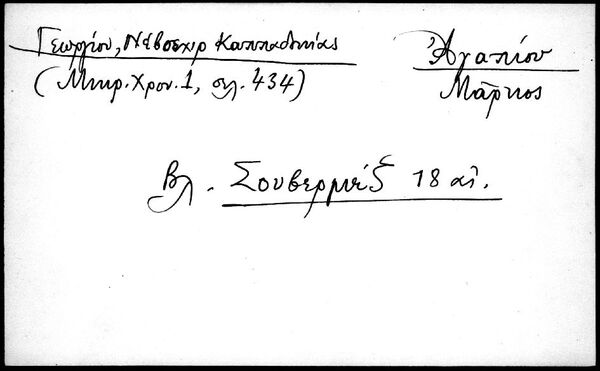 Γεωργίου, Νέβσεχιρ Καππαδοκίας
(Μικρ. Χρον. 1, σελ. 434)
Ἀγαπίου
Μάρκος
Βλ. Σουβερμέζ 18 αἰ.